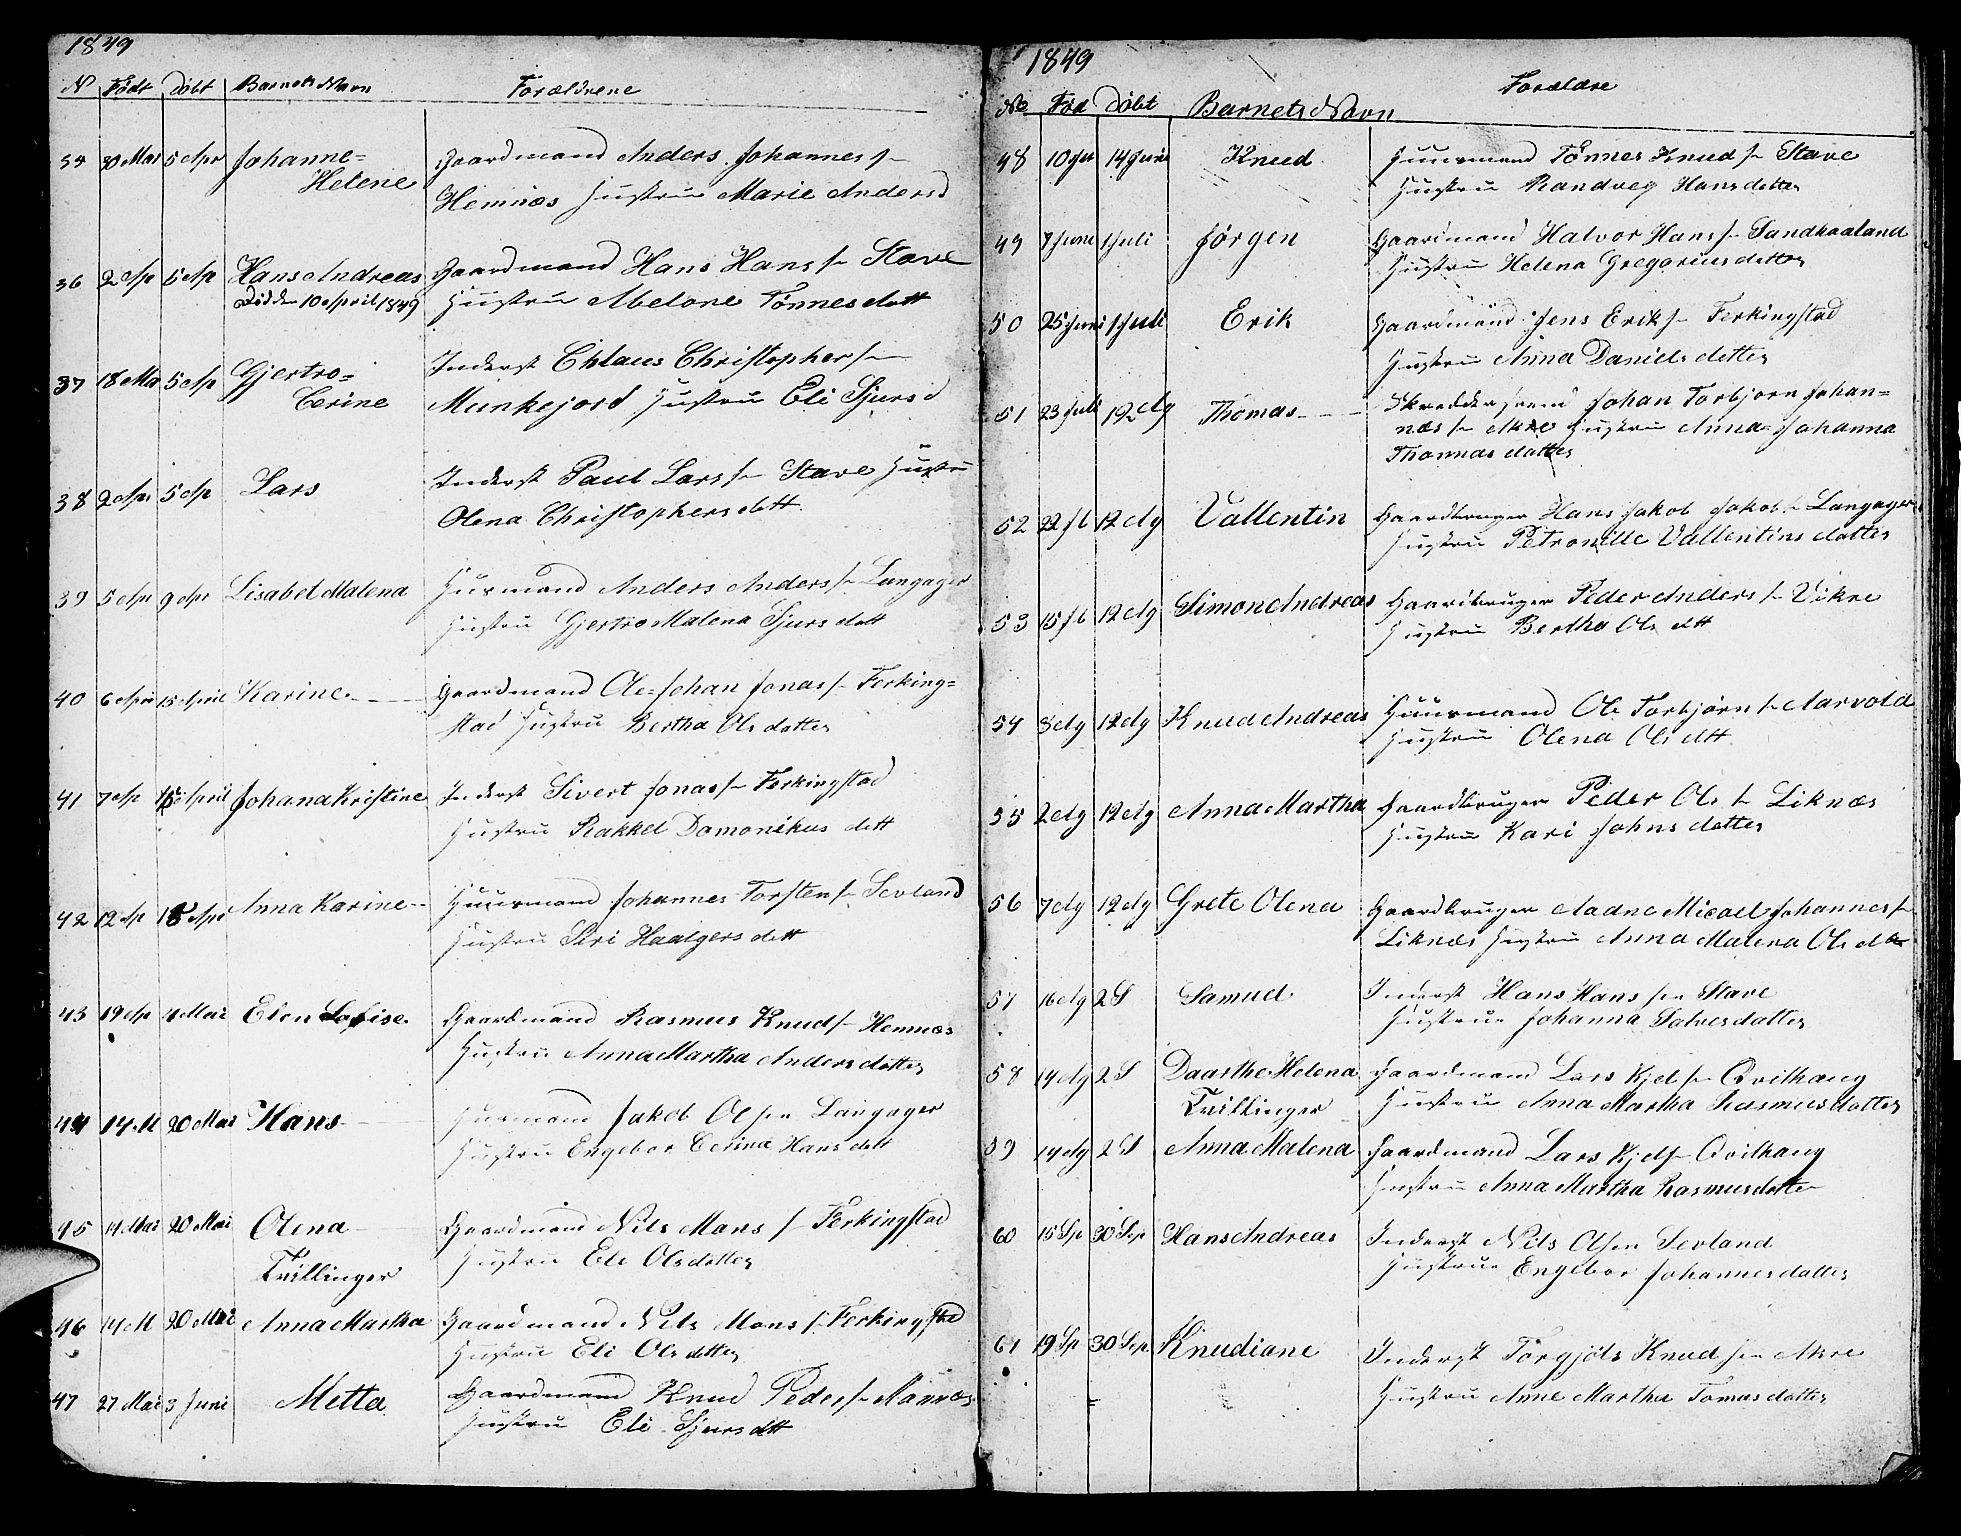 1849
N Født døbt Barnets Navn Forældrene
34 30 Mar 5 Apr Johanne= Gaardmand Anders Johannes s–
Helene Hemnæs Hustru Marie Andersd
36 2 Ap 5 Ap Hans Andreas Gaardmand Hans Hans s– Stave
Død den 10 April 1849 Hustru Melone Tønnesdatt
37 18 Ma 5 Ap Gjertro= Inderst Chlaus Christophers–
Cerine Munkejord Hustru Eli Sjursd
38 2 Apr 5 Ap Lars Inderst Paul Lars s– Stave Hustru
Olena Christophersdatt
39 5 Apr 9 Apr Lisabet Malena Husmand Anders Anders s– Langager
Hustru Gjertro Malena Sjursdatt
40 6 Apr 15 April Karine Gaardmand Ole Johan Jonas s– Ferking=
stad Hustru Bertha Olsdatter
41 7 Ap 15 April Johana Kristine Inderst Sivert Jonas s– Ferkingstad
Hustru Rakkel Domonikus dett
42 12 Ap 15 Apr Anna Karine Huusmand Johannes Torstens– Sevland
Hustru Siri Haalgersdatt
43 19 Ap 4 Mai Elen Lovise Gaardmand Rasmus Knuds– Hemnæs
Hustru Anna Martha Andersdatter
44 14 M 20 Mai Hans Husmand Jakob Olsen Langager
Hustru Engebor Cerina Hansdatt
45 14 Mai 20 Mai Olena Gaardmand Nils Mons s– Ferkingstad
Tvillinger Hustru Eli Olsdatter
46 14 M 20 Mai Anna Martha Gaardmand Nils Mons s– Ferkingstad
Hustru Eli Olsdatter
47 27 Mai 3 Juni Metta Gaardmand Knud Peders– Mannes
Hustru Eli Sjursdtt
1849
No Fød Døbt Barnets Navn Forældre
48 10 Ju 14 Juni Knud Huusmand Tønnes Knuds– Stave
Hustru Randveg Hansdatter
49 7 Juni 1 Juli Jørgen Gaardmand Halvor Hans s– Sandkaaland
Hustru Helena Gregoriusdatter
50 25 Juni 1 Juli Erik Gaardmand Jens Eriks– Ferkingstad
Hustru Anna Danielsdatter
51 23 Juli 12 Ag Thomas Skreddersvend Johan Torbjørn Johan=
næs s– Akre Hustru Anna Johanna
Thomasdatter
52 22 Jl 12 Ag Vallentin Gaardbruger Hans Jakob Jakobs– Langager
Hustru Petronille Vallentinsdatter
53 15 Jl 12 Ag Simon Andreas Gaardbruger Peder Anders s– Vikre
Hustru Bertha Olsdtt
54 3 Ag 12 Ag Knud Andreas Huusmand Ole Torbjørn s– Aarvold
Hustru Olena Olsdtt
55 2 Ag 12 Ag Anna Martha Gaardbruger Peder Ols s– Liknæs
Hustru Kari Johnsdatter
56 7 Ag 12 Ag Grete Olena Gaardbruger Aadne Micael Johannes s–
Liknæs Hustru Anna Malena Olsdtr
57 16 Ag 2 S Samud Inderst Hans Hans sen Stave
Hustrue Johanna Salvesdatter
58 14 Ag 2 S Daarthe Helena Gaardmand Lars Kjel s– Qvilhaug
Tvillinger Hustru Anna Martha Rasmusdatter
59 14 Ag 2 S Anna Malena Gaardmand Lars Kjels– Qvilhaug
Hustru Anna Martha Rasmusdatte
60 15 Sp 30 Sep Hans Andreas Inderst Nils Olsen Sevland
Hustrue Engebor Johannesdatter
61 19 Sp 30 Sep Knudiane Inderst Torgjøls Knud sen Akre
Hustru Anne Martha Tomasdatter